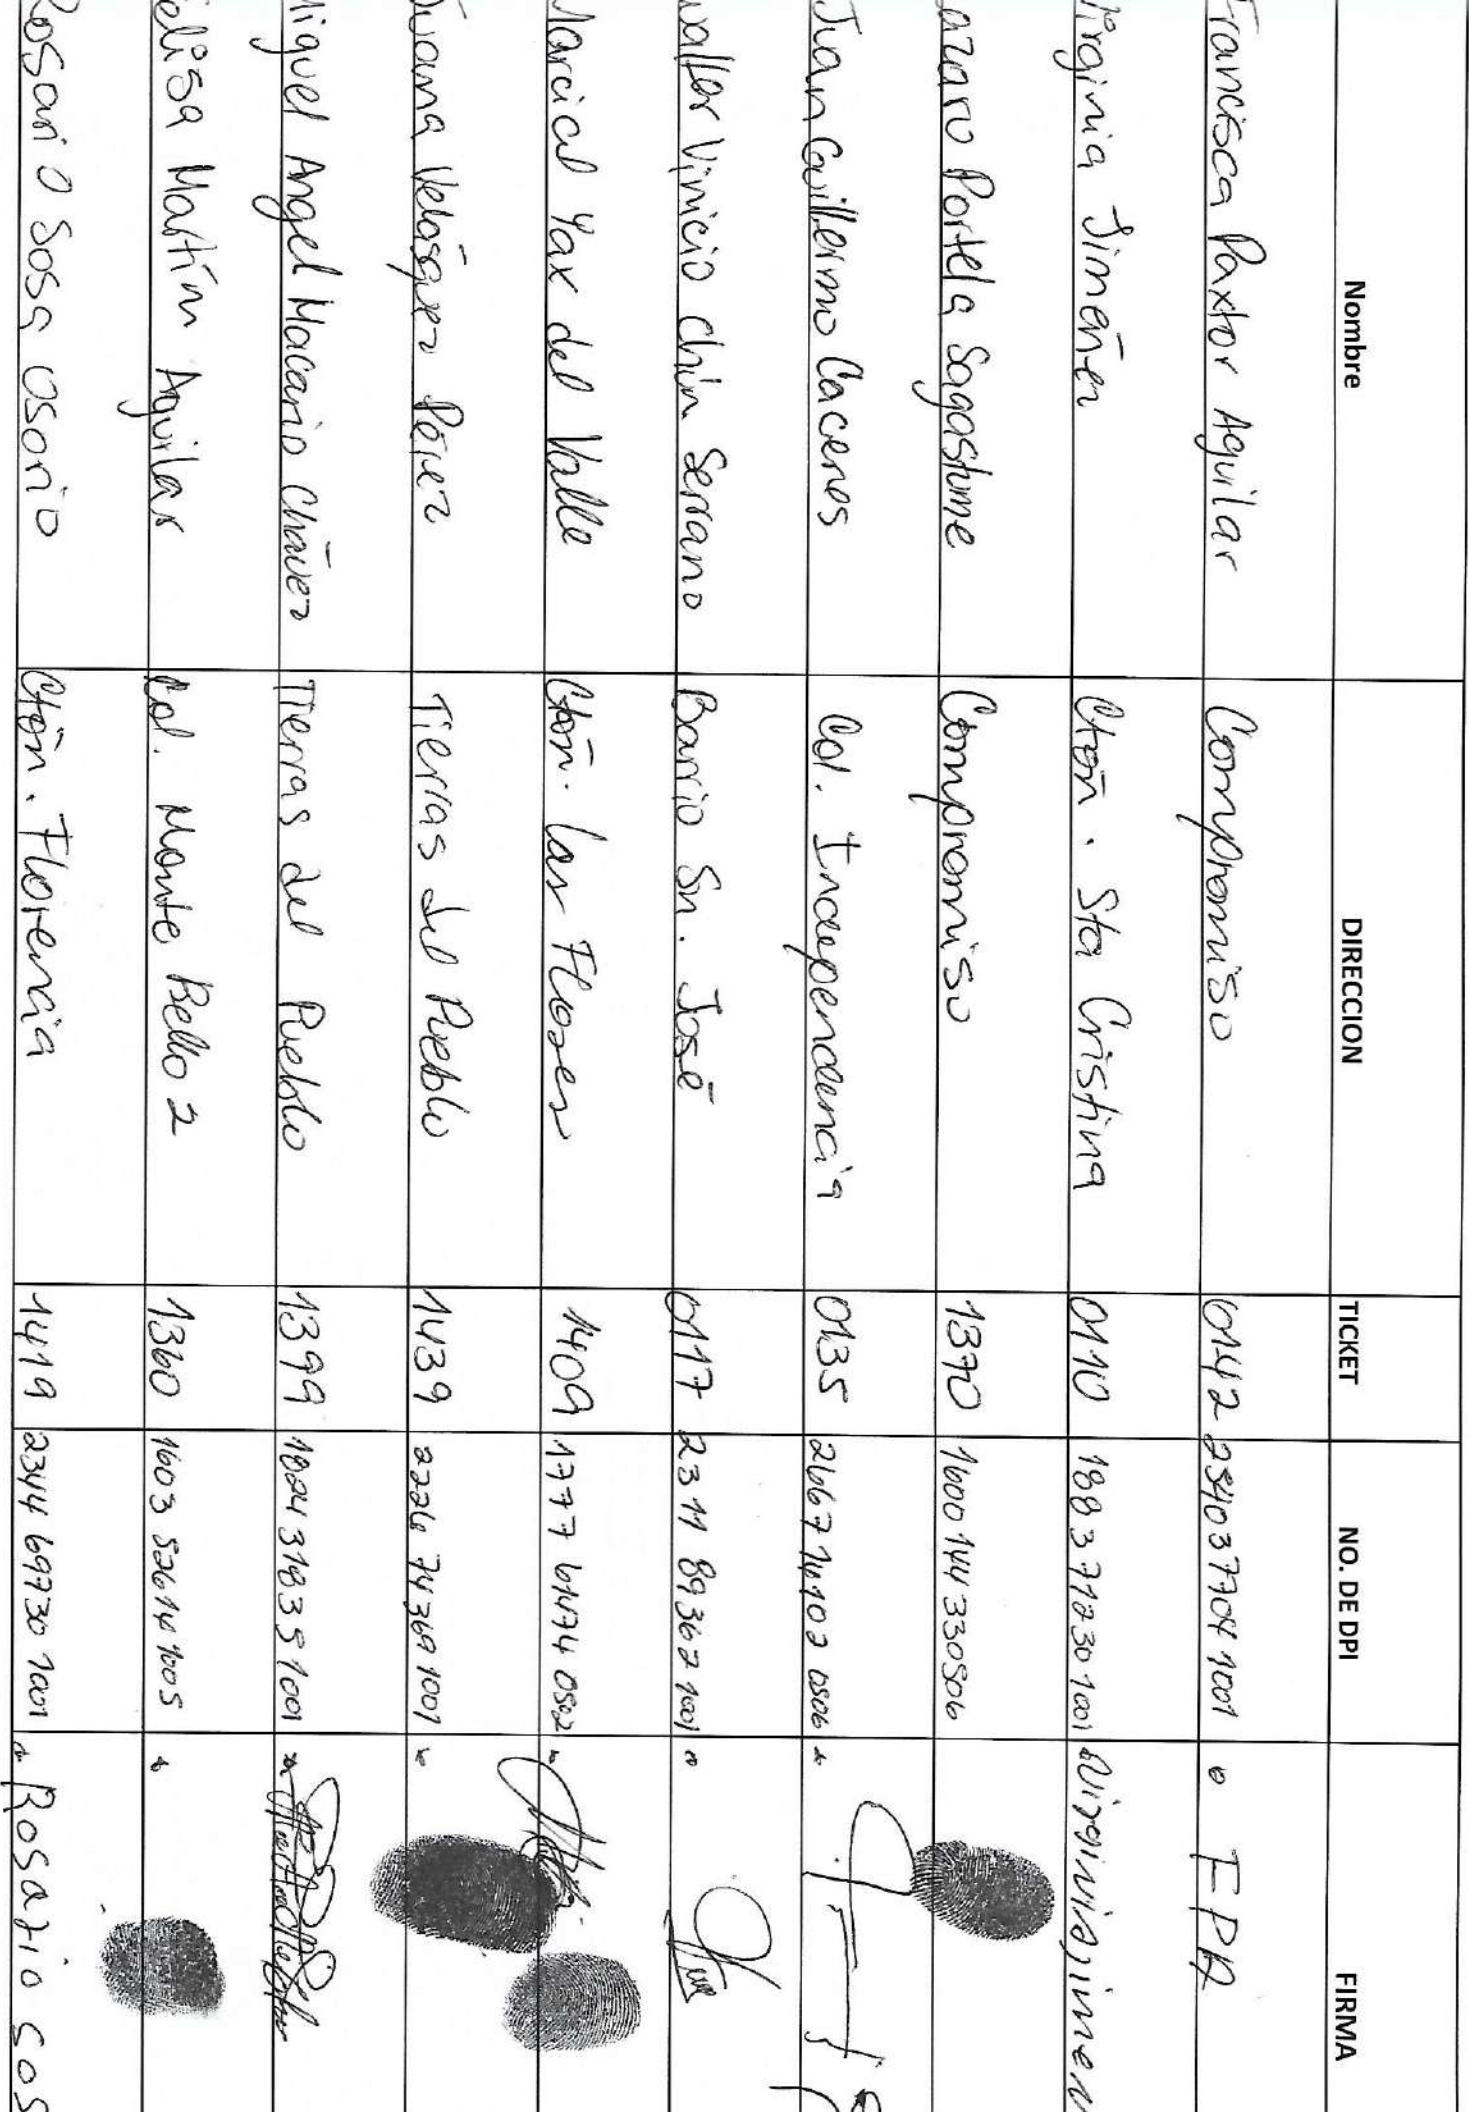 Nombre DIRECCION TICKET NO. DE DPI FIRMA
Francisca Paxtor Aguilar Compromiso 0142 2340377041001 FPA
Virginia Jimenēz Ctōn. Sta Cristina 0110 1883712301001 Virginiajimen
azaro Portela Sagastume Compromiso 1370 1600144330506
Juan Guillermo Caceres Col. Independencia 0135 2667141020506
Walter Vinicio Chin Serrano Barrio Sn. José 0117 2311 89362 1001
Marcial Yax del Valle Ctōn. Las Flores 1409 1777 61474 0502
Juana Velāsquez Pérez Tierras del Pueblo 1439 2226 74369 1001
Miguel Angel Macario Chāvez Tierras del Pueblo 1399 1824 31835 1001
elisa Martín Aguilar Col. Monte Bello 2 1360 1603 52614 1005
Rosario Sosa Osorio Ctōn. Florencia 1419 2344 69730 1001 Rosario sos